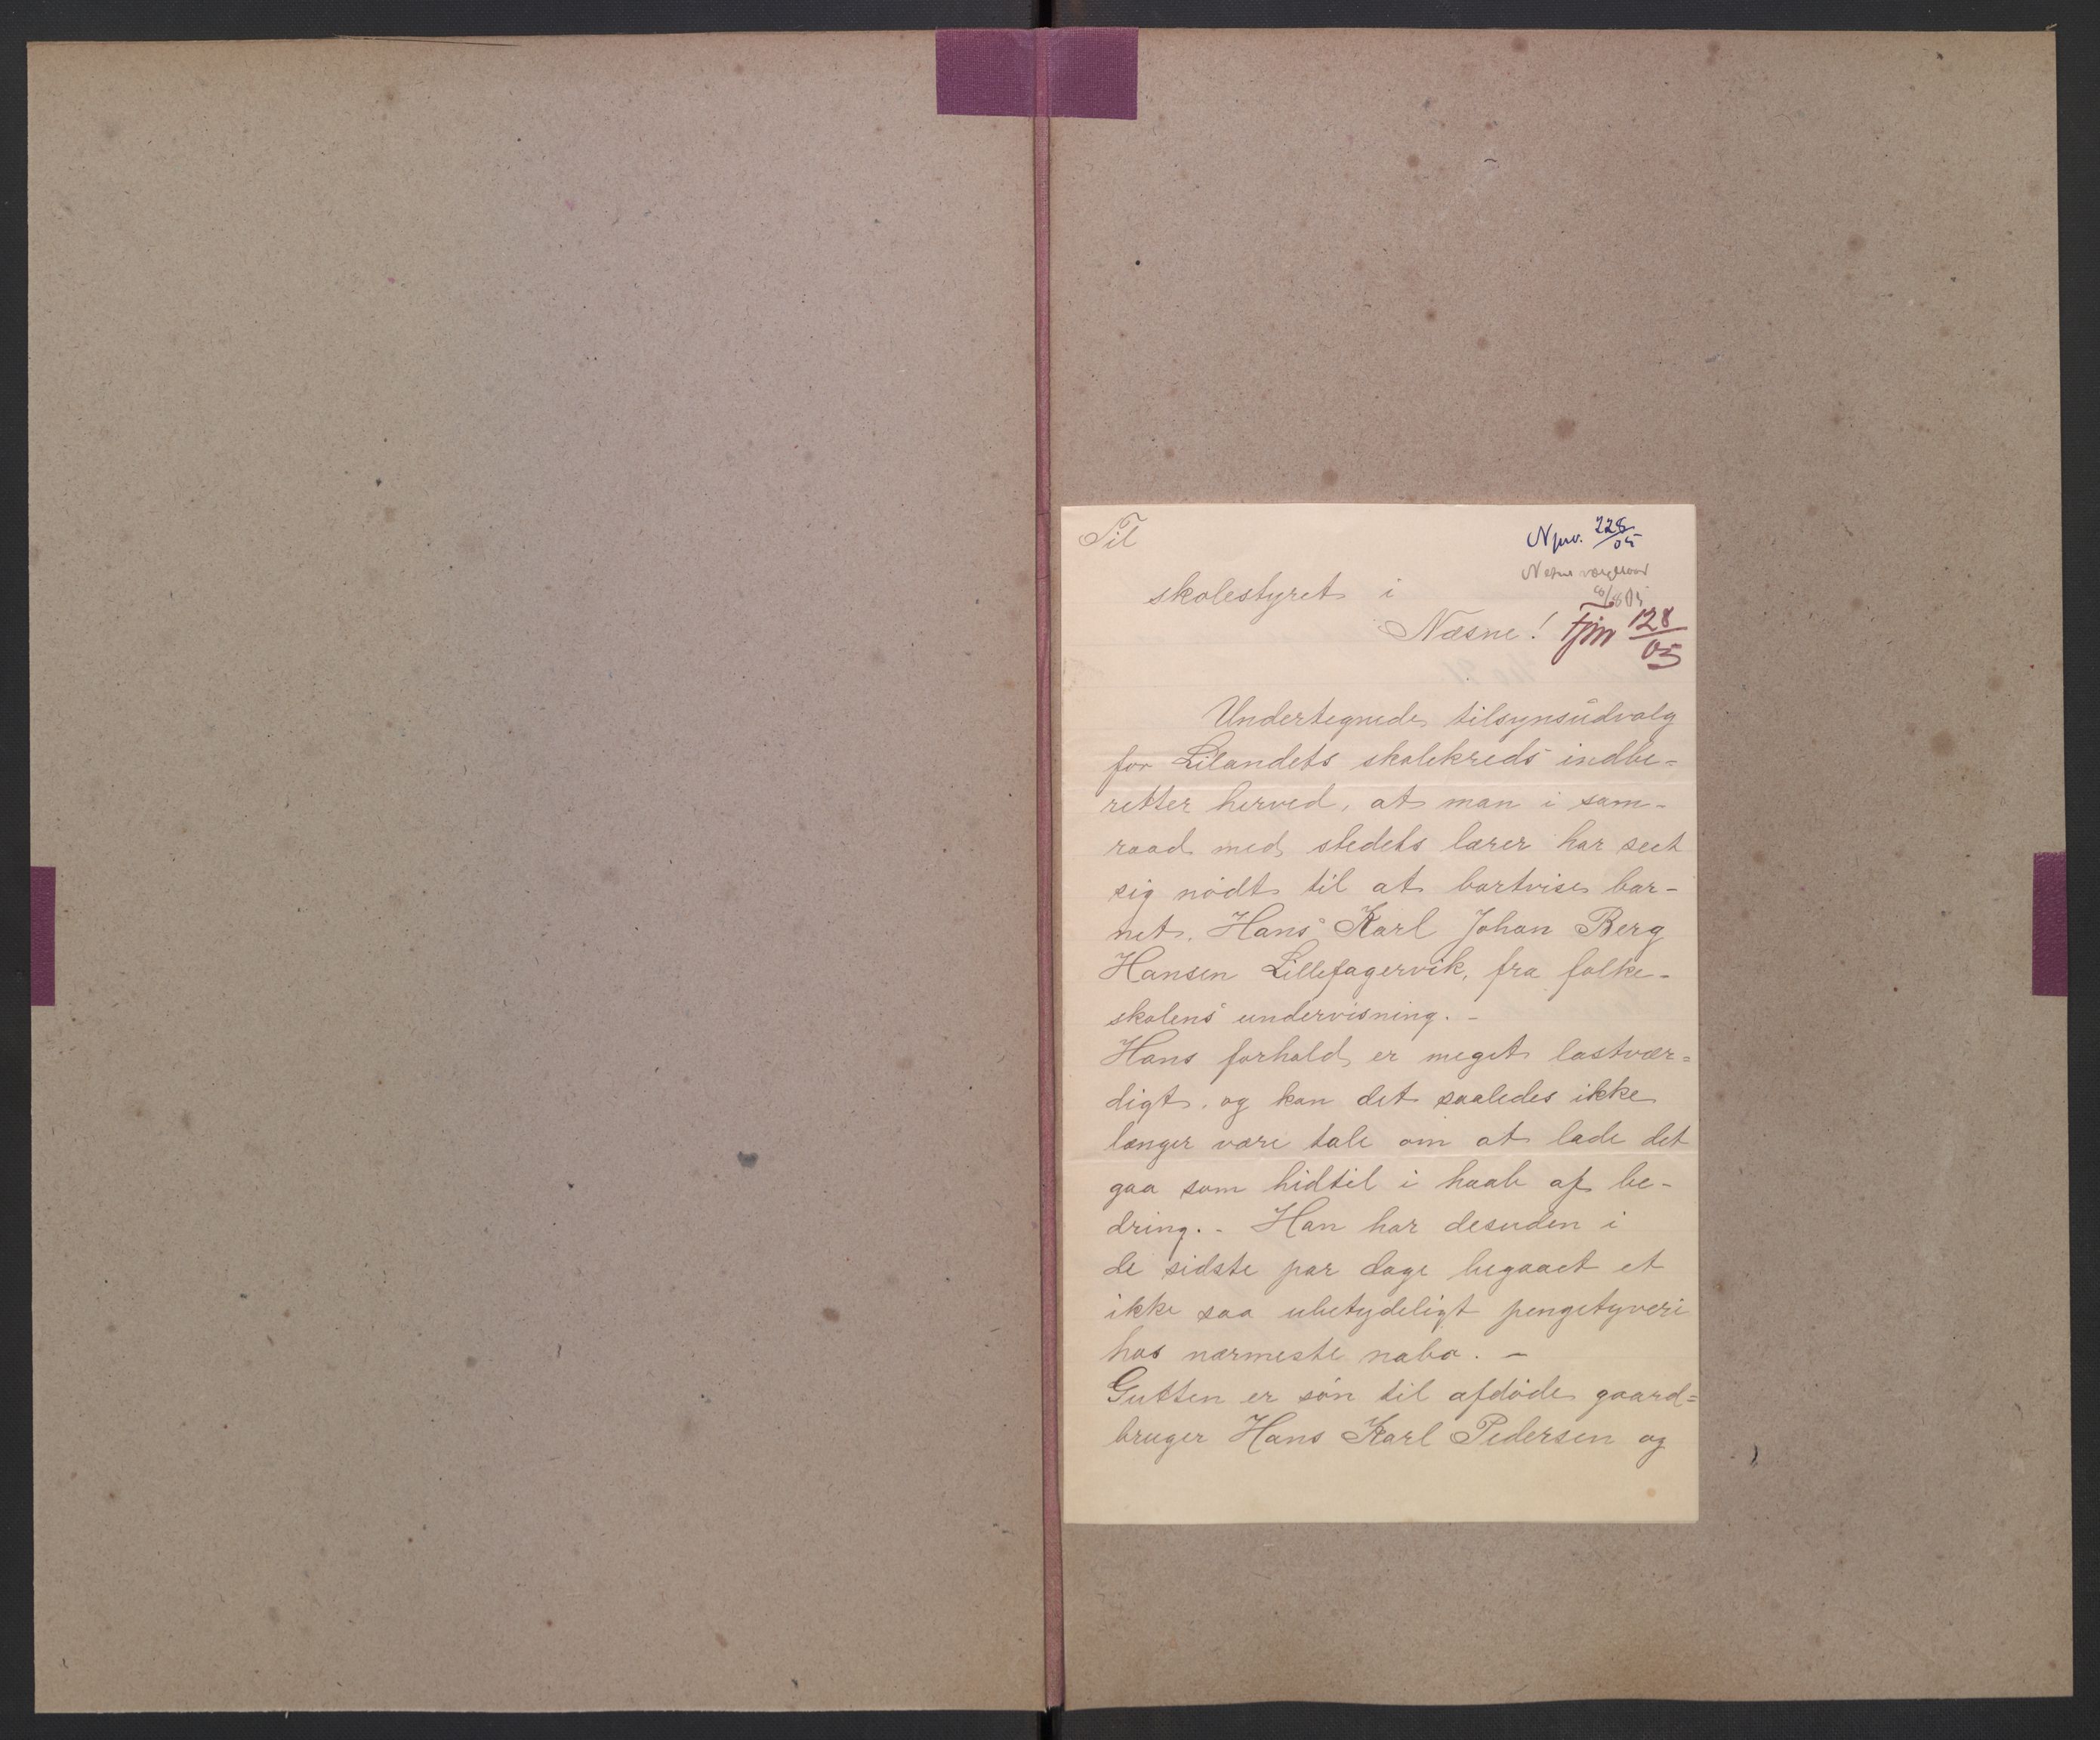 Til
Npro. 228/05
Nesne vergeraad
skolestyret i
Næsne!
128/05
Undertegnede tilsynsudvalg
for Lilandets skolekreds indbe-
retter herved, at man i sam-
raad med stedets lærer har seet
sig nödt til at bortvise bar-
net, Hans Karl Johan Berg
Hansen Lillefagervik, fra folke-
skolens undervisning. -
Hans forhold er meget lastvær=
digt, og kan det saaledes ikke
længer være tale om at lade det
gaa som hidtil i haab af be-
dring. - Han har desuden i
de sidste par dage begaaet et
ikke saa ubetydeligt pengetyveri
hos nærmeste nabo. -
Gutten er sön til afdöde gaard=
bruger Hans Karl Pedersen og